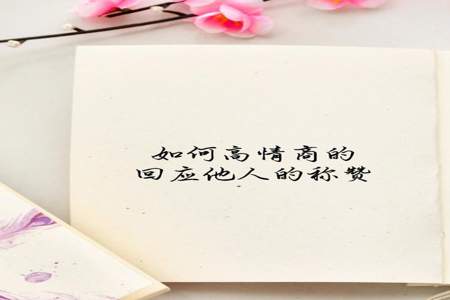 如何高情商的
回应他人的称赞